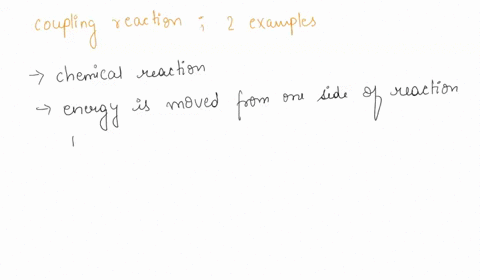 coupling reaction ; 2 examples
→ chemical reaction
→ energy is moved from one side of reaction